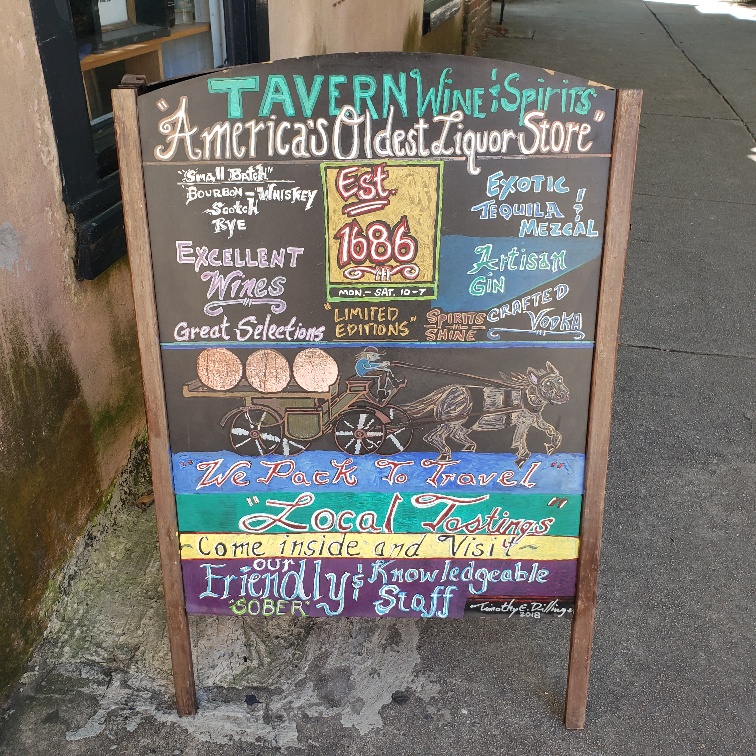 TAVERN Wine & Spirits
"America's Oldest Liquor Store"
"Small Batch"
Bourbon - Whiskey
Scotch
Rye
Excellent
Wines
Great Selections
Est.
1686
MON. - SAT. 10-7
"LIMITED
EDITIONS"
EXOTIC
TEQUILA &
MEZCAL
Artisan
GIN
CRAFTED
VODKA
SPIRITS
SHINE
"We Pack To Travel"
"Local Tastings"
~Come inside and Visit~
our
Friendly & Knowledgeable
"SOBER" Staff
Timothy E. Dillinger
2018